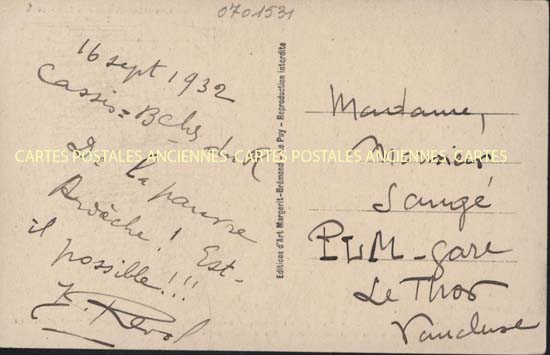 0701531
16 sept 1932
Cassis = B ches du R
De la pauvre
Ardèche ! Est-
il possible !!!
Editions d'Art Margerit-Brémond - Le Puy - Reproduction interdite
Madame,
Monsieur
Sangé
PLM - gare
Le Thor
Vaucluse
CARTES POSTALES ANCIENNES CARTES POSTALES ANCIENNES CARTES POSTALES ANCIENNES